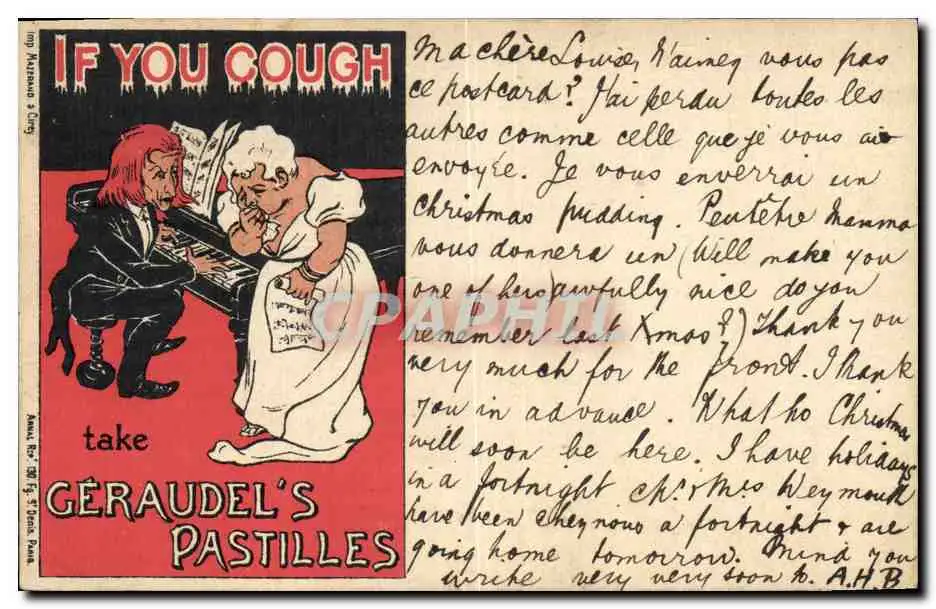 Imp. Mazerand à Cirey
IF YOU COUGH
take
GÉRAUDEL'S
PASTILLES
Arnal Repr. 130, Fg. St Denis, Paris
Ma chère Louise, N'aimez vous pas
ce postcard? J'ai perdu toutes les
autres comme celle que je vous ai
envoyée. Je vous enverrai un
Christmas pudding. Peutêtre Mamma
vous donnera un (Will make you
one of hers) awfully nice do you
remember last Xmas?) Thank you
very much for the front. I thank
you in advance. What ho Christmas
will soon be here. I have holidays
in a fortnight Mrs Weymouth
have been chez nous a fortnight + are
going home tomorrow. Mind you
write very very soon to A.H.B
CPAPHIL